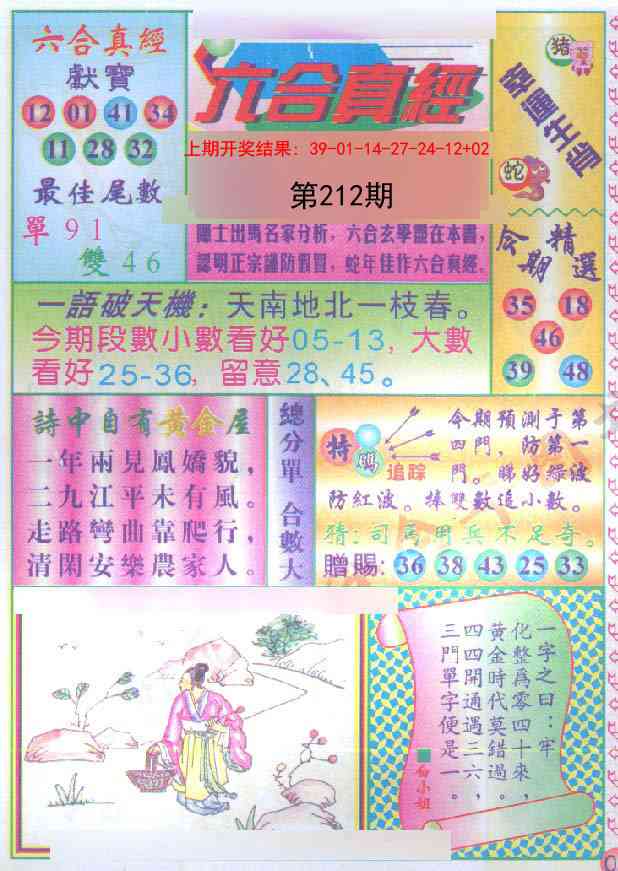 六合真經
獻寶
12 01 41 34
11 28 32
最佳尾數
單91
雙46
六合真經
上期开奖结果: 39-01-14-27-24-12+02
第212期
士出馬名家分析，六合玄學盡在本書，
認明正宗謹防假冒，蛇年佳作六合真經。
豬
蛇
今期精選
35 18
46
39 48
一語破天機：天南地北一枝春。
今期段數小數看好05-13, 大數
看好25-36, 留意28、45。
詩中自有黃金屋
一年兩見鳳嬌貌，
二九江平未有風。
走路彎曲靠爬行，
清閑安樂農家人。
總分單 合數大
特碼
追踪
今期預測于第
四門，防第一
門。睇好綠波
防紅波。捧雙數追小數。
猜：司馬用兵不足奇。
贈賜: 36 38 43 25 33
一字之曰：牢
化整為零四十來，
黃金時代莫錯過，
四四開通遇三六，
三門單字便是一。
白小姐